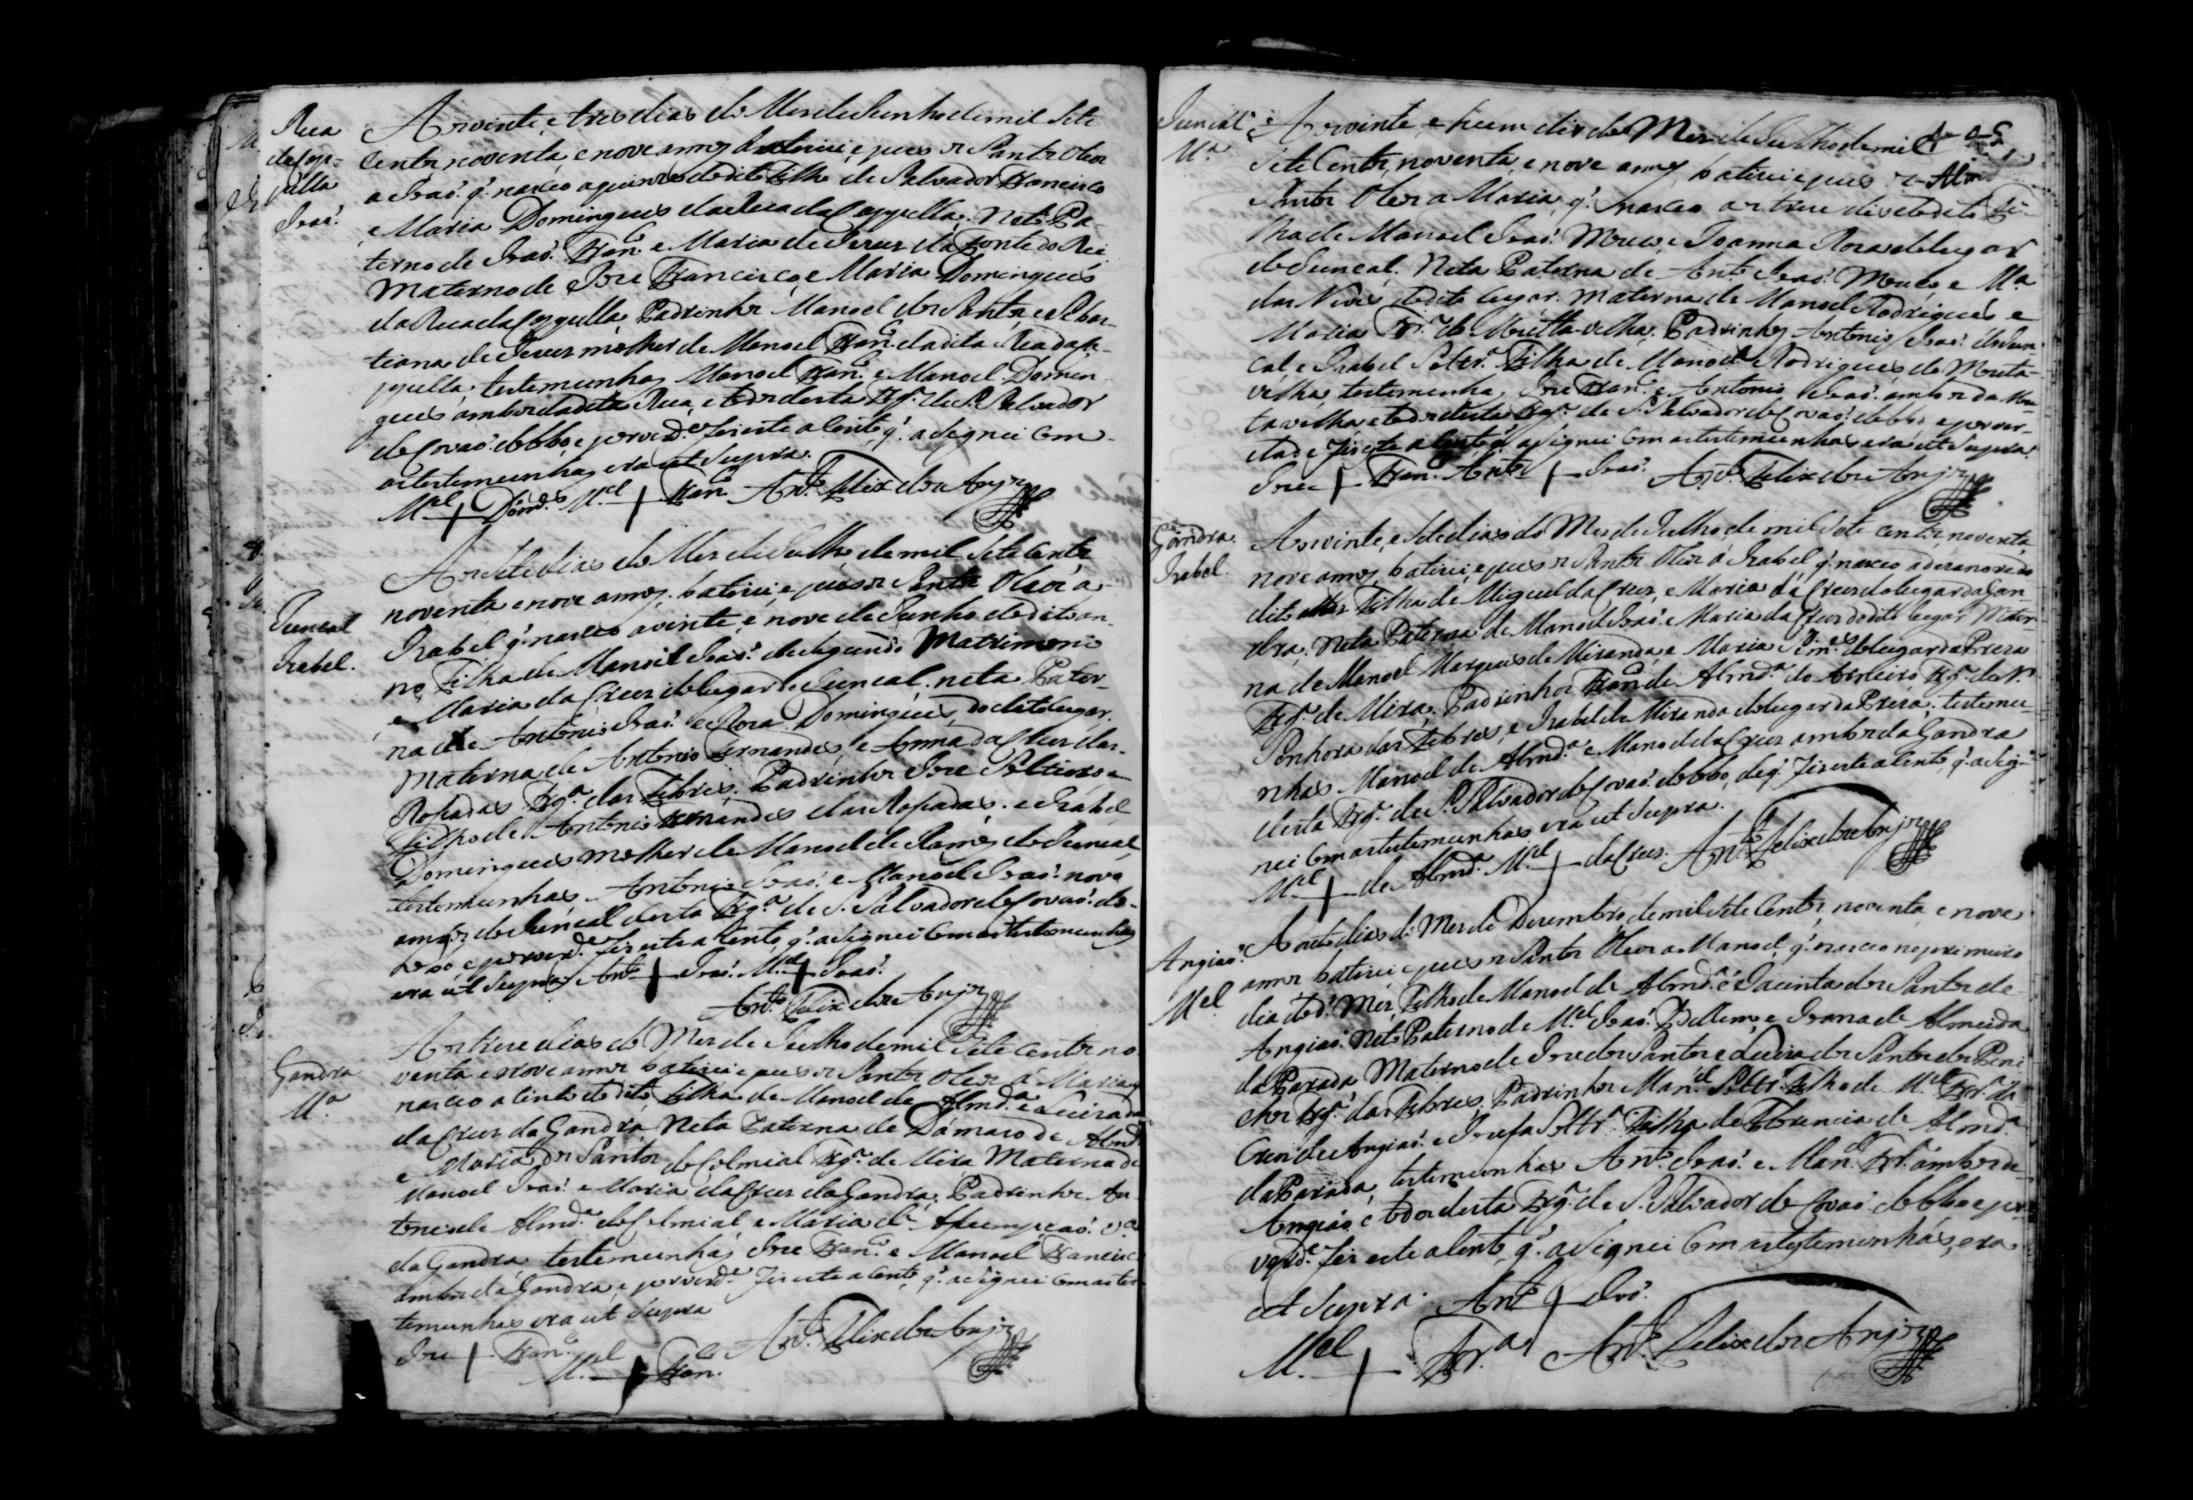 Rua
da Cap-
pella
Joaõ.
Aos vinte, e tres dias do Mes de Junho de mil Sete
Centos, noventa, e nove annos baticei, e pus os Santos Oleos
a Joaõ. q̃. nasceo a quinze do dito Filho de Salvador Francisco
e Maria Domingues da Rua da Cappella. Neto Pa
terno de Joaõ. Fran.co e Maria de Jesus da Fonte do Rei
Materno de Joze Francisco, e Maria Domingues
da Rua da Cappella, Padrinhos Manoel dos Santos, e Sebas-
tiana de Jesus molher de Manoel Fran.co da dita Rua da Ca-
ppella; testemunhas Manoel Fran.co e Manoel Domin
gues ambos da dita Rua, e todos desta Frg.a de S. Salvador
de Covaõ. do Lobo, e por verd.e fiz este acento q̃. asignei Com
as testemunhas era ut Supra.
M.el + Dom.es M.el + Fran.co Ant.o Felix dos Anjos
Juncal
Izabel.
Aos Sete dias do Mes de Julho de mil Sete Centos
noventa e nove annos, baticei, e pus os Santos Oleos a
Izabel q̃. nasceo a vinte, e nove de Junho do dito an-
no, Filha de Manoel Joaõ. de Segundo Matrimonio
e Maria da Cruz do lugar do Juncal. neta Pater-
na de Antonio Joaõ. e Roza Domingues, do dito lugar.
Materna de Antonio Fernandes, e Anna da Cruz das
Rossadas Frg.a das Febres; Padrinhos Joze Solteiro
Filho de Antonio Fernandes das Rossadas. e Izabel
Domingues molher de Manoel de Ramos do Juncal,
testemunhas Antonio Joaõ. e Manoel Joaõ. novo
ambos do Juncal desta Frg.a de S. Salvador de Covaõ. do
Lobo e por verd.e fiz este acento q̃. asignei Com as testemunhas
era ut Supra Ant.o + Joaõ. M.el + Joaõ.
Ant.o Felix dos Anjos
Gandra
M.a
Aos treze dias do Mes de Julho de mil Sete Centos no
venta e nove annos baticei e pus os Santos Oleos á Maria q̃
nasceo a cinco do dito, Filha de Manoel de Almd.a e Luiza
da Cruz da Gandra, Neta Paterna de Damazo de Almd.a
e Maria dos Santos do Colmial Frg.a de Mira Materna de
Manoel Joaõ. e Maria da Cruz da Gandra. Padrinhos An
tonio de Almd.a do Colmial e Maria da Assumpçaõ. v.a
da Gandra testemunhas Joze Fran.co e Manoel Francisco
ambos da Gandra e por verd.e fiz este acento q̃. asignei Com as tes
temunhas era ut Supra
Joze + Fran.co Ant.o Felix dos Anjos
M.el + Fran.co
Juncal
M.a
Aos vinte, e hum dias do Mes de Julho de mil
Sete Centos, noventa, e nove annos, baticei e pus os
Santos Oleos a Maria, q̃. nasceo aos treze dias do dito Fi-
lha de Manoel Joaõ. Mouco e Joanna Roza do lugar
do Juncal. Neta Paterna de Ant.o Joaõ. Mouco e M.a
das Neves do dito lugar. Materna de Manoel Rodrigues e
Maria Fr.a da Moitta velha. Padrinhos Antonio Joaõ. do Jun-
cal, e Izabel Soltr.a Filha de Manoel Rodrigues da Moita
velha, testemunhas Joze Fran.co e Antonio Joaõ. ambos da Moi-
ta velha e todos desta Frg.a de S. Salvador de Covaõ. do Lobo e por ver-
dade fiz este acento q̃ asignei Com as testemunhas era ut Supra.
Joze + Fran.co Ant.o + Joaõ. Ant.o Felix dos Anjos
Gandra
Izabel.
Aos vinte, e Sete dias do Mes de Julho, de mil Sete Centos, noventa,
nove annos, baticei, e pus os Santos Oleos á Izabel q̃. nasceo a dezanove do
dito Mes Filha de Miguel da Cruz, e Maria da Cruz do lugar da Gan-
dra. Neta Paterna de Manoel Joaõ. e Maria da Cruz do dito lugar Mater-
na de Manoel Marques de Miranda, e Maria Sim.es do lugar da Preza
Frg.a de Mira; Padrinhos Fran.co de Almd.a do Arneiro Frg.a de N.
Senhora das Febres, e Izabel de Miranda do lugar da Preza; testemu-
nhas Manoel de Almd.a e Manoel da Cruz ambos da Gandra
desta Frg.a de S. Salvador de Covaõ. do Lobo, de q̃. fiz este acento, q̃. asig-
nei Com as testemunhas era ut Supra.
M.el + de Almd.a M.el + da Cruz. Ant.o Felix dos Anjos
Angiaõ.
M.el
Aos oito dias do Mes de Dezembro de mil Sete Centos noventa, e nove
annos baticei e pus os Santos Oleos a Manoel, q̃. nasceo no primeiro
dia do d.o Mes, Filho de Manoel de Almd.a e Jacinta dos Santos de
Angiaõ. Neto Paterno de M.el Joaõ. Bellemo, e Joana de Almeida
da Parada Materno de Joze dos Santos e Luiza dos Santos dos Beni
chos Frg.a das Febres; Padrinhos Man.el Soltr.o Filho de M.el Fr.a da
Cruz de Angiaõ. e Josefa Soltr.a Filha de Florencia de Almd.a
da Parada, testemunhas Ant.o Joaõ. e Man.el Fr.a ambos de
Angiaõ e todos desta Frg.a de S. Salvador de Covaõ do Lobo e por
verd.e fiz este acento, q̃. asignei Com as testemunhas, era
ut Supra. Ant.o + Joaõ.
M.el + Fr.a Ant.o Felix dos Anjos